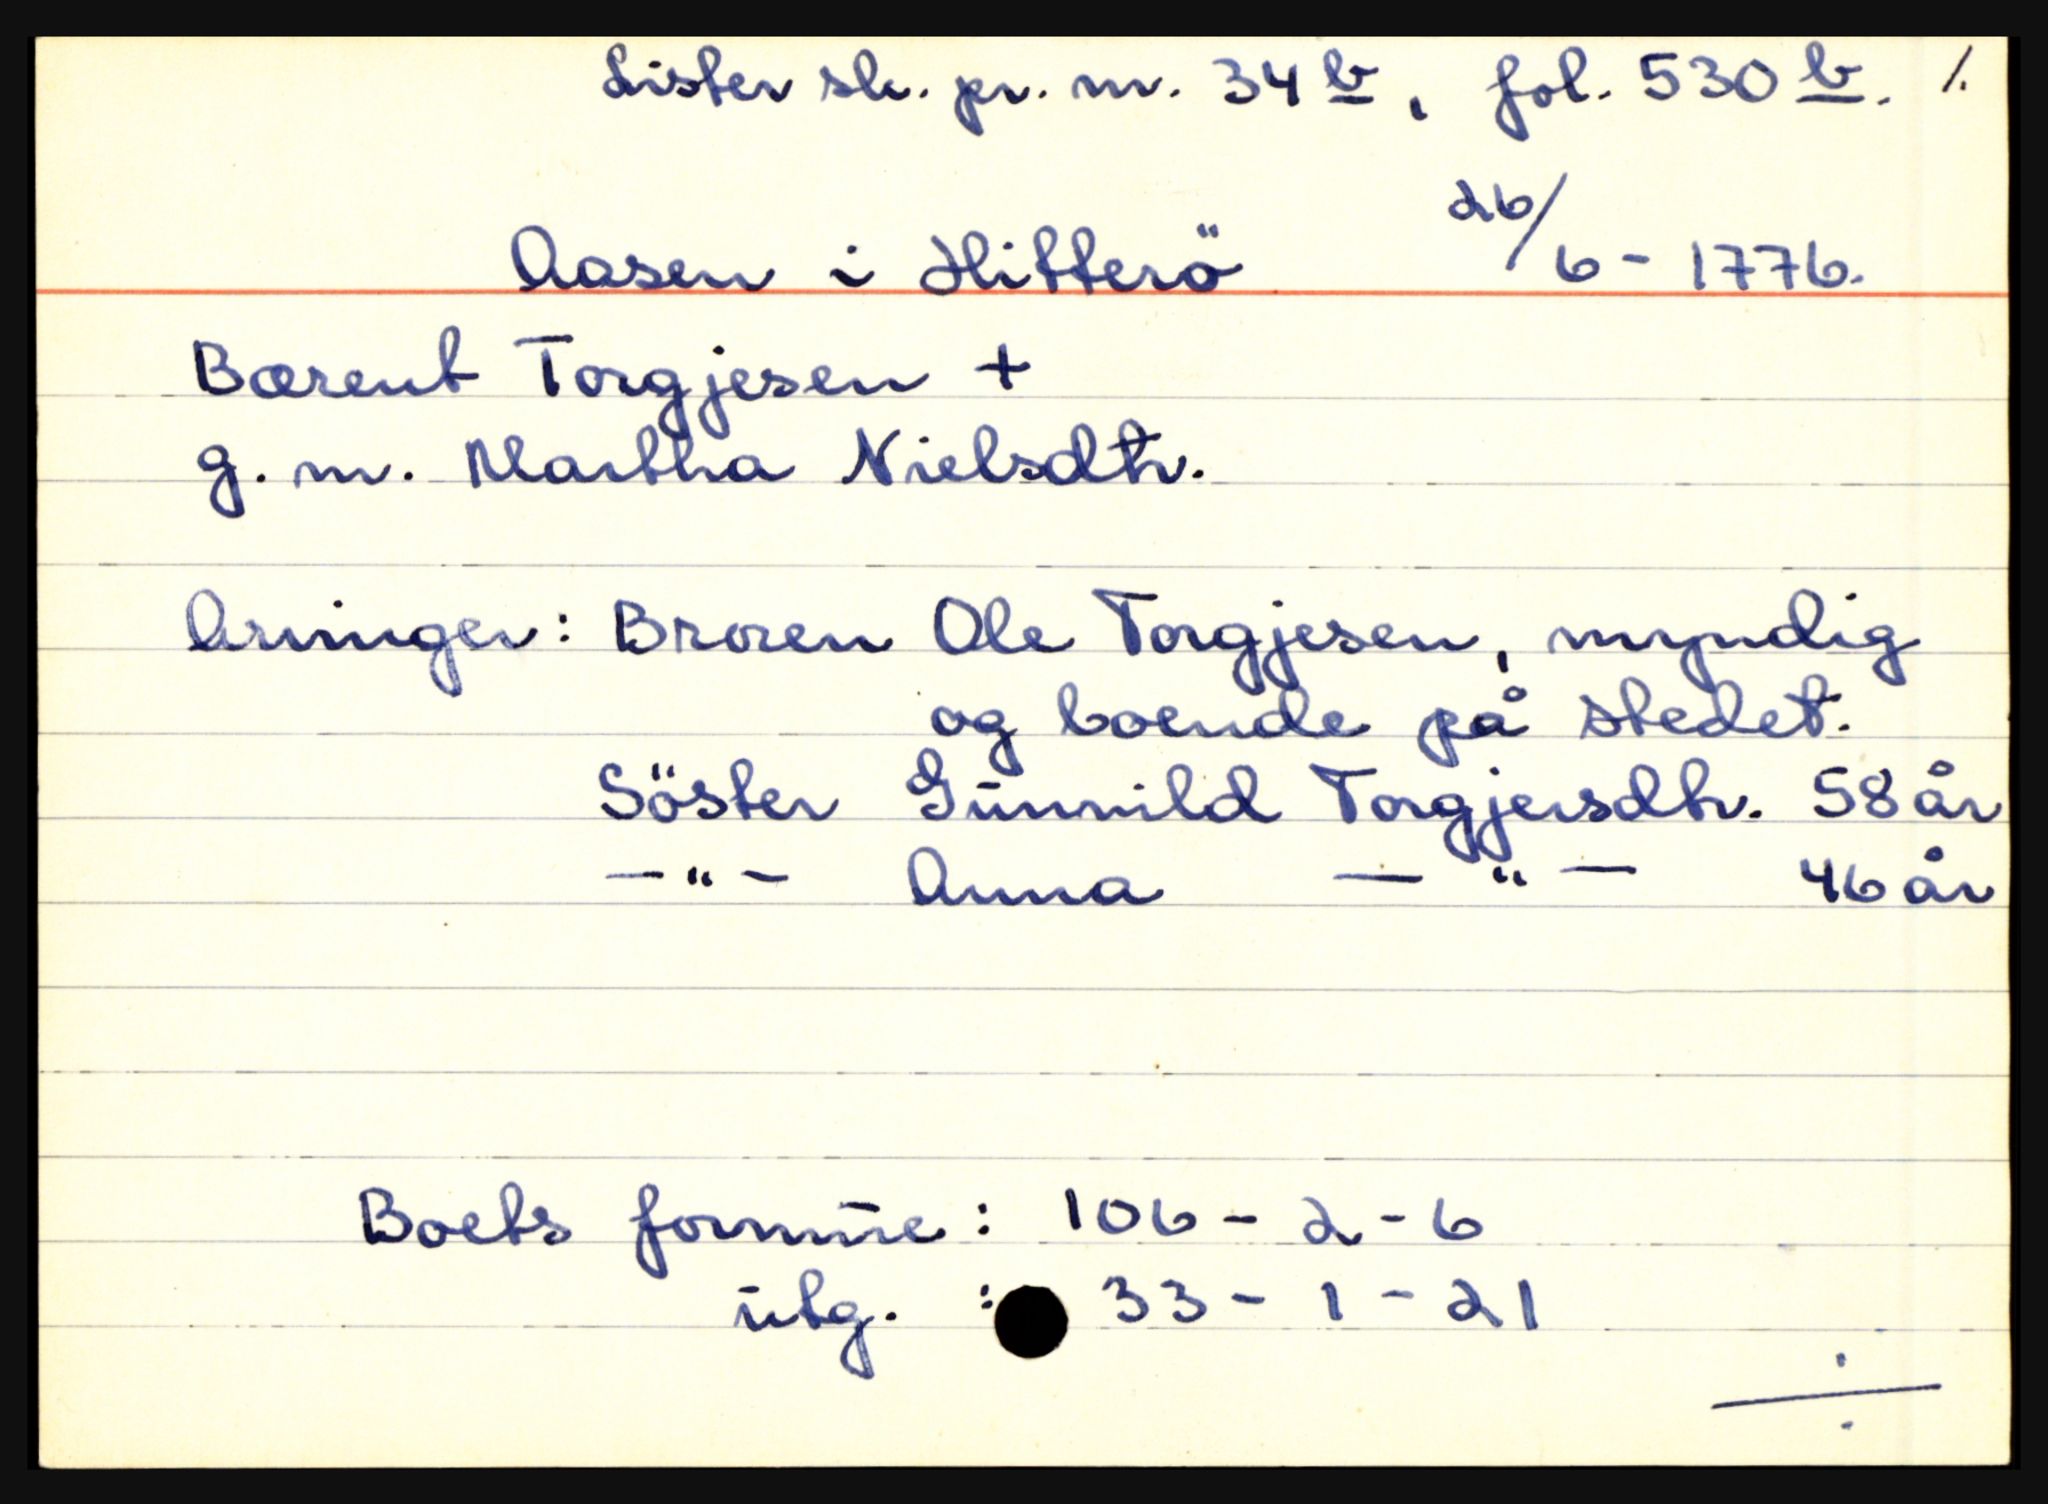 Lister sk. pr. nr. 34 b, fol. 530 b. /.
Aasen i Hitterö 26/6 - 1776.
Bærent Torgjesen +
g. m. Martha Nielsdtr.
Arvinger: Broren Ole Torgjesen, myndig
og boende på stedet.
Söster Gunnild Torgjersdtr. 58 år
— " — Anna — " — 46 år
Boets formue : 106 - 2 - 6
utg. : 33 - 1 - 21